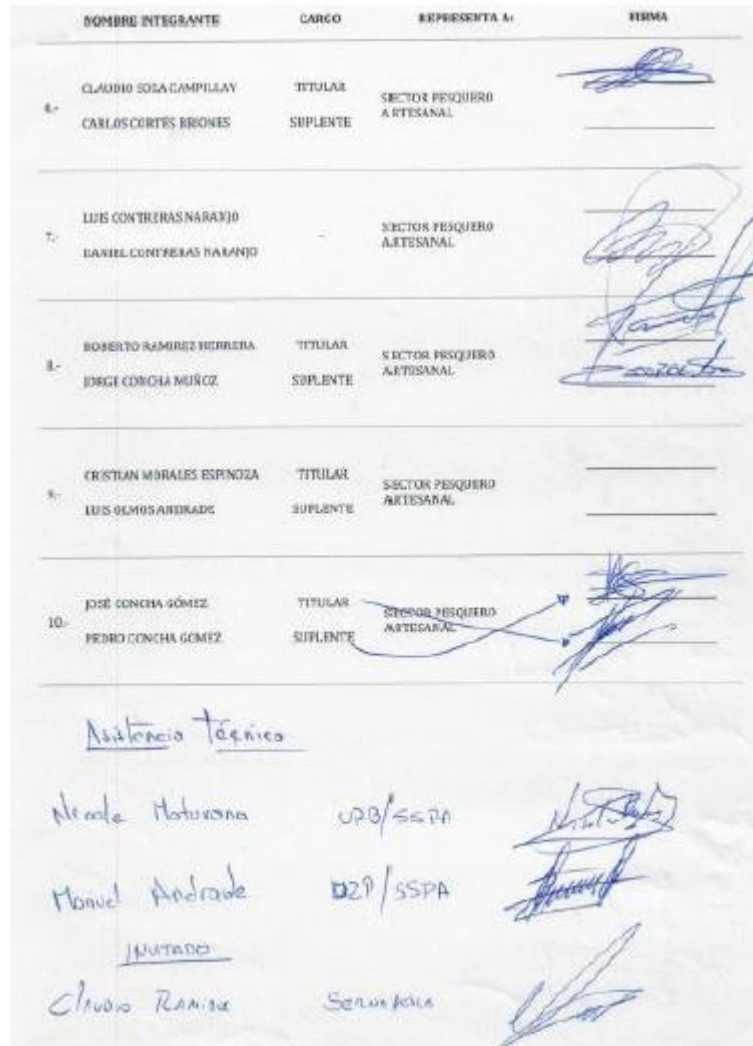 NOMBRE INTEGRANTE CARGO REPRESENTA A: FIRMA
6.- CLAUDIO SOZA CAMPILLAY TITULAR SECTOR PESQUERO ARTESANAL
CARLOS CORTÉS BRIONES SUPLENTE
7.- LUIS CONTRERAS NARANJO - SECTOR PESQUERO ARTESANAL
DANIEL CONTRERAS NARANJO
8.- ROBERTO RAMIREZ HERRERA TITULAR SECTOR PESQUERO ARTESANAL
JORGE CONCHA MUÑOZ SUPLENTE
9.- CRISTIAN MORALES ESPINOZA TITULAR SECTOR PESQUERO ARTESANAL
LUIS OLMOS ANDRADE SUPLENTE
10.- JOSÉ CONCHA GÓMEZ TITULAR SECTOR PESQUERO ARTESANAL
PEDRO CONCHA GOMEZ SUPLENTE
Asistencia Técnica
Nicole Maturana UPB/SSPA
Manuel Andrade DZP/SSPA
INVITADO
Claudio Ramirez Sernapesca